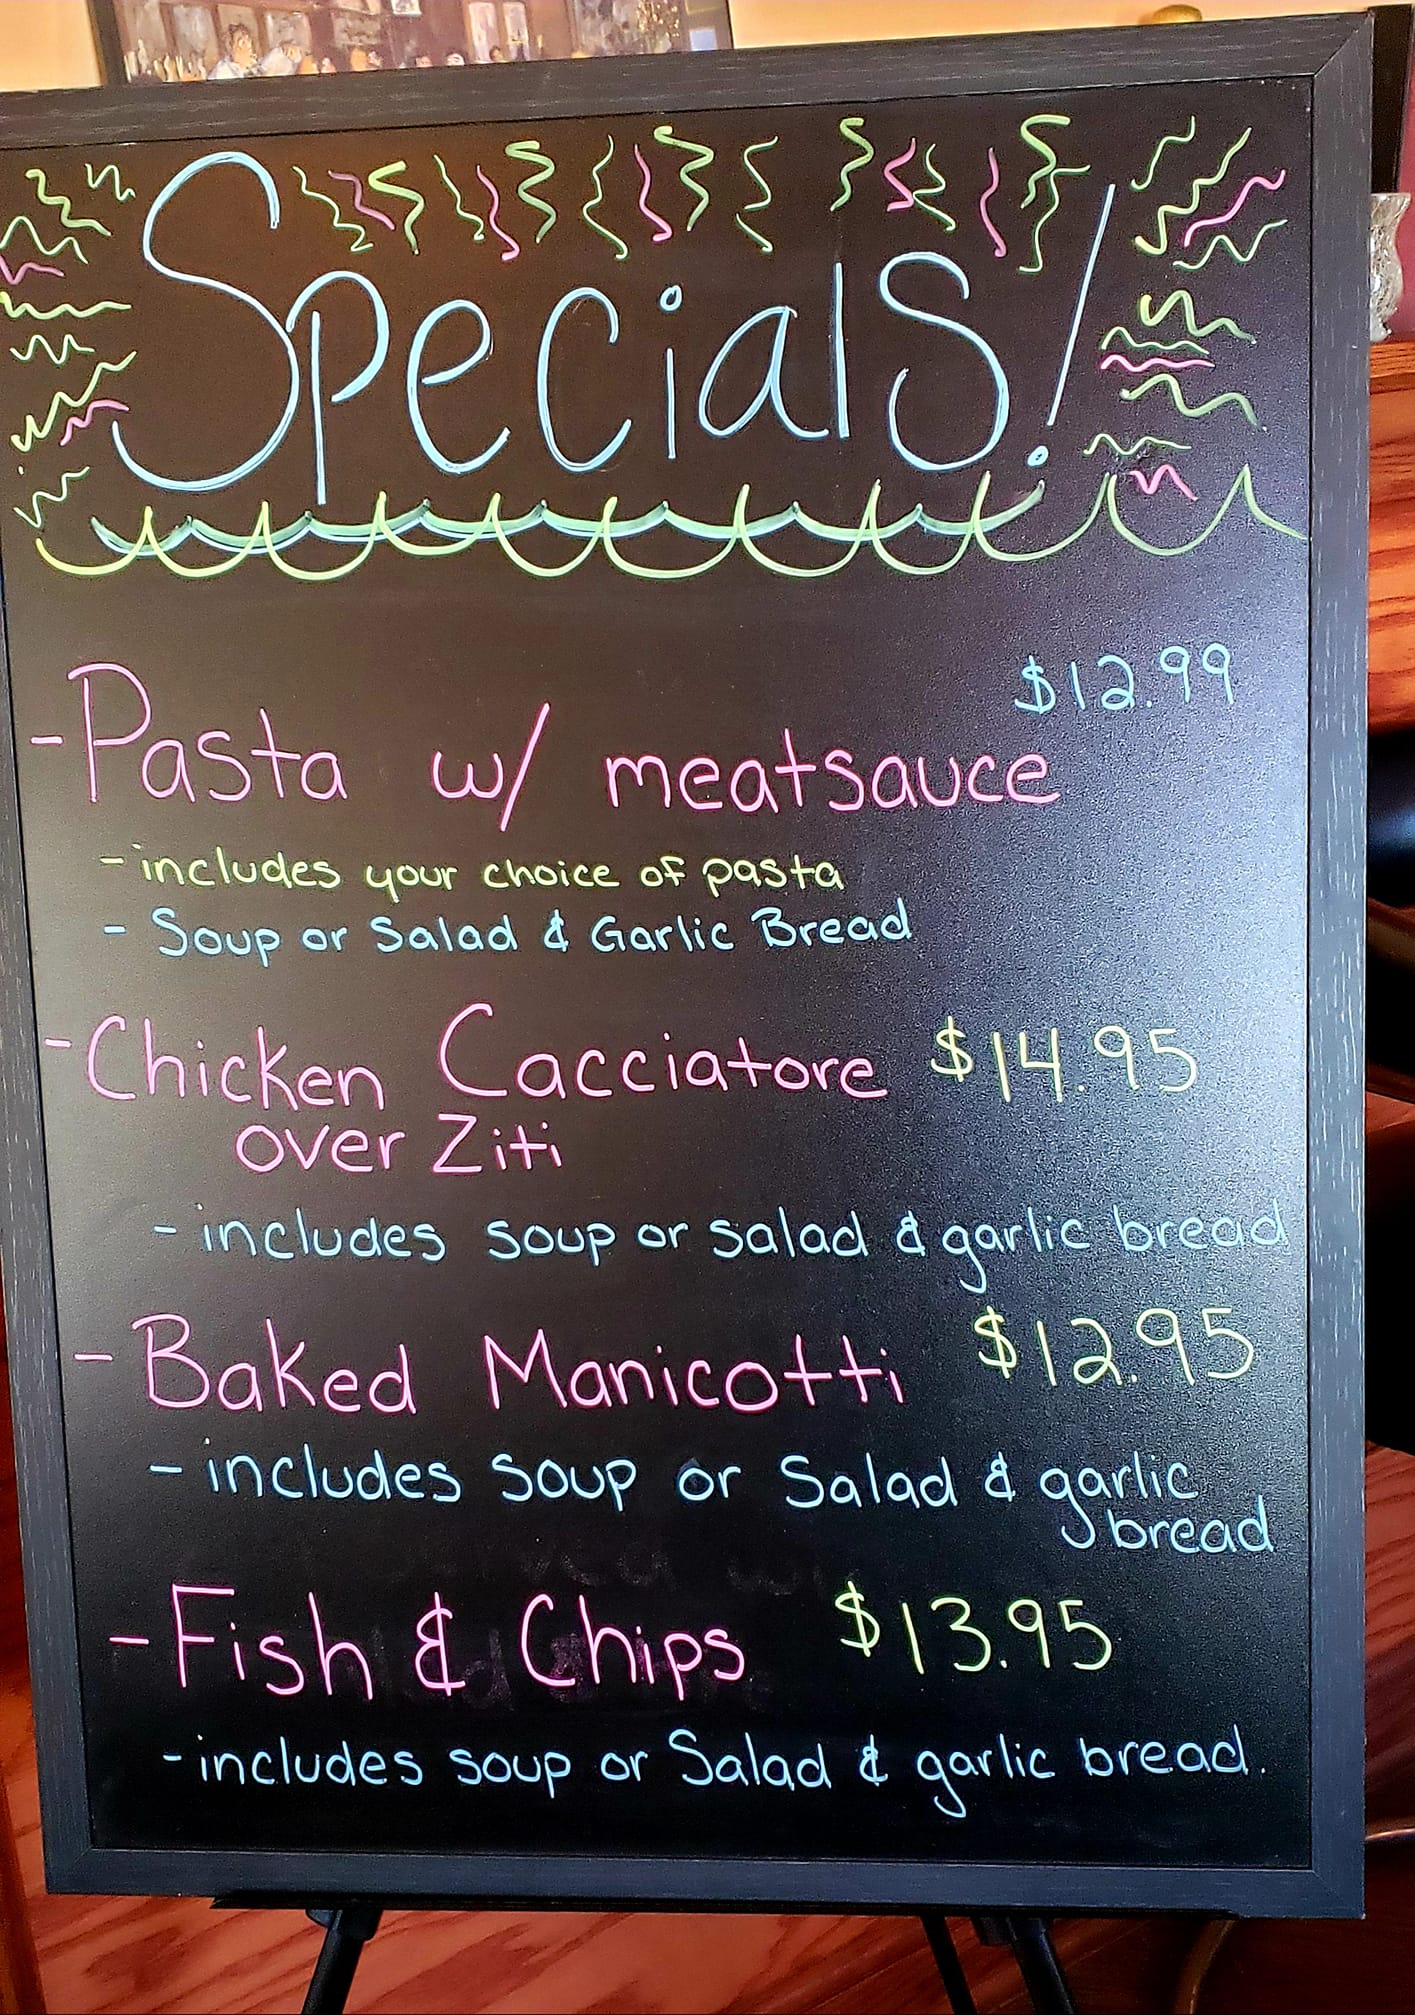 Specials!
$12.99
- Pasta w/ meatsauce
- includes your choice of pasta
- Soup or Salad & Garlic Bread
- Chicken Cacciatore $14.95
over Ziti
- includes soup or salad & garlic bread
- Baked Manicotti $12.95
- includes soup or Salad & garlic
bread
- Fish & Chips $13.95
- includes soup or Salad & garlic bread.